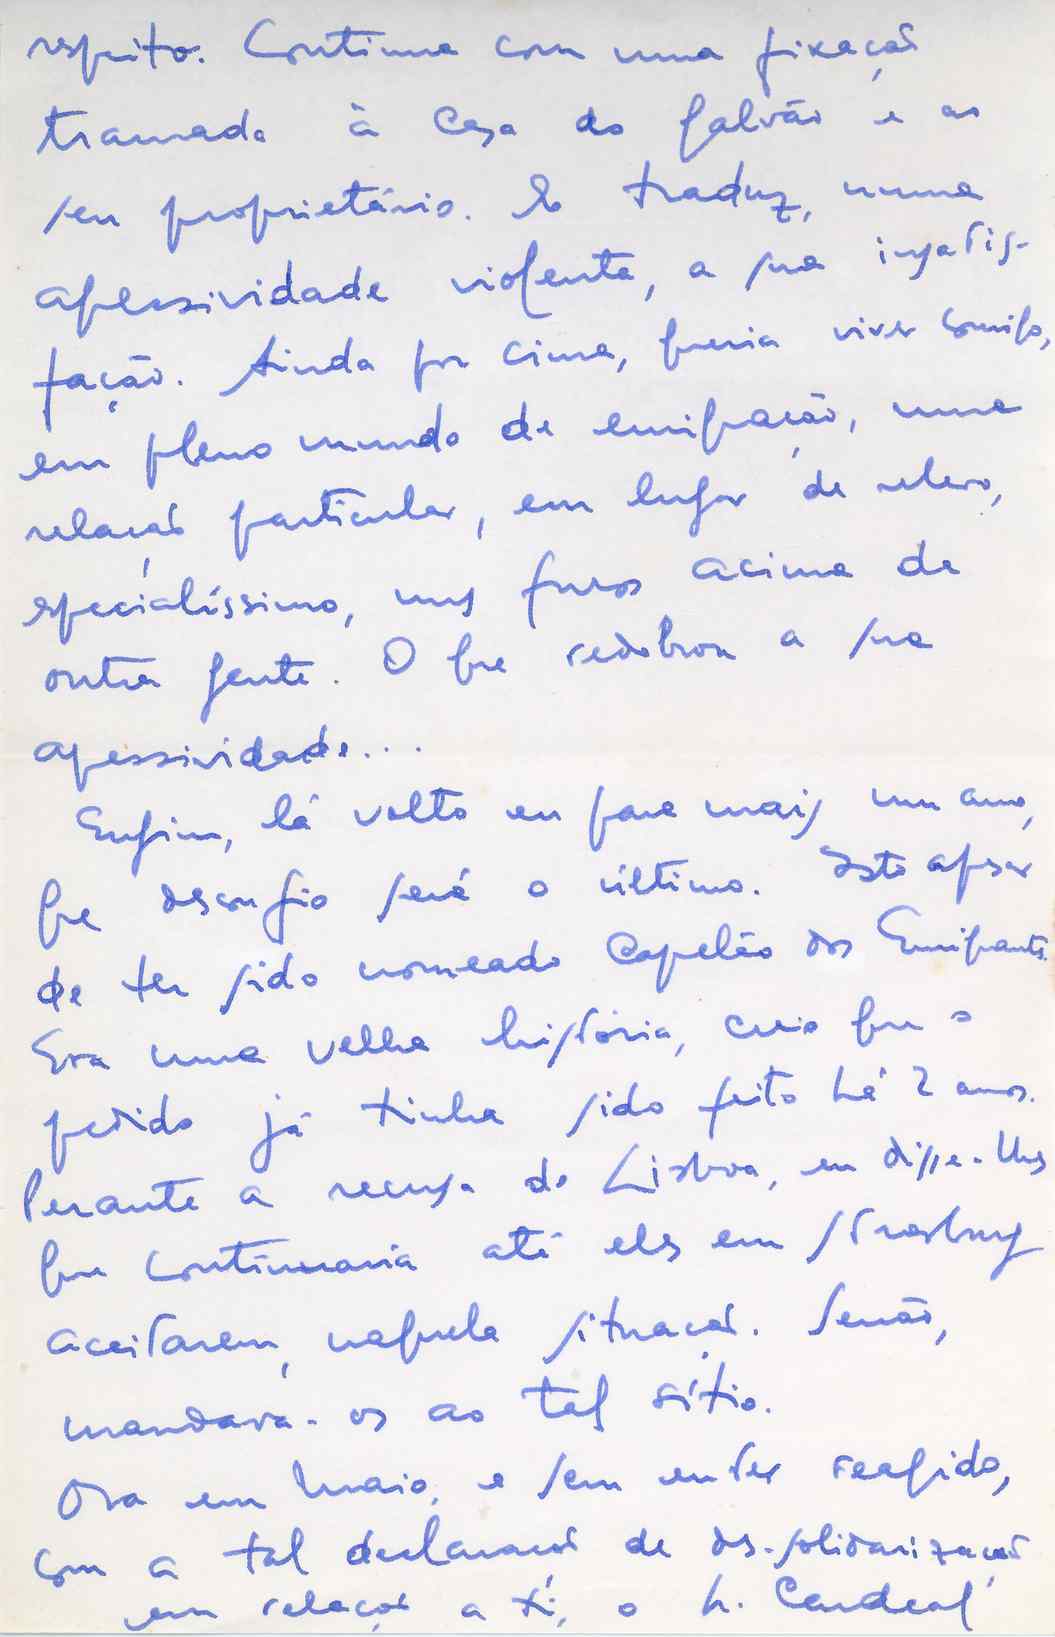 respeito. Continua com uma fixação
tramada à Casa do Galvão e ao
seu proprietário. E traduz, numa
agressividade violenta, a sua insatis-
fação. Ainda por cima, queria viver comigo,
em pleno mundo de emigração, uma
relação particular, em lugar de relevo,
especialíssimo, uns furos acima de
outra gente. O que redobrou a sua
agressividade...
Enfim, lá volto eu para mais um ano,
que desconfio será o último. Isto apesar
de ter sido nomeado Capelão dos Emigrantes.
Era uma velha história, creio que o
pedido já tinha sido feito há 2 anos.
Perante a recusa de Lisboa, eu disse-lhes
que continuaria até eles em Strasburg
aceitarem, naquela situação. Senão,
mandava-os ao tal sítio.
Ora em Maio, e sem eu ter reagido,
com a tal declaração de des-solidarização
em relação a ti, o Sr. Cardeal